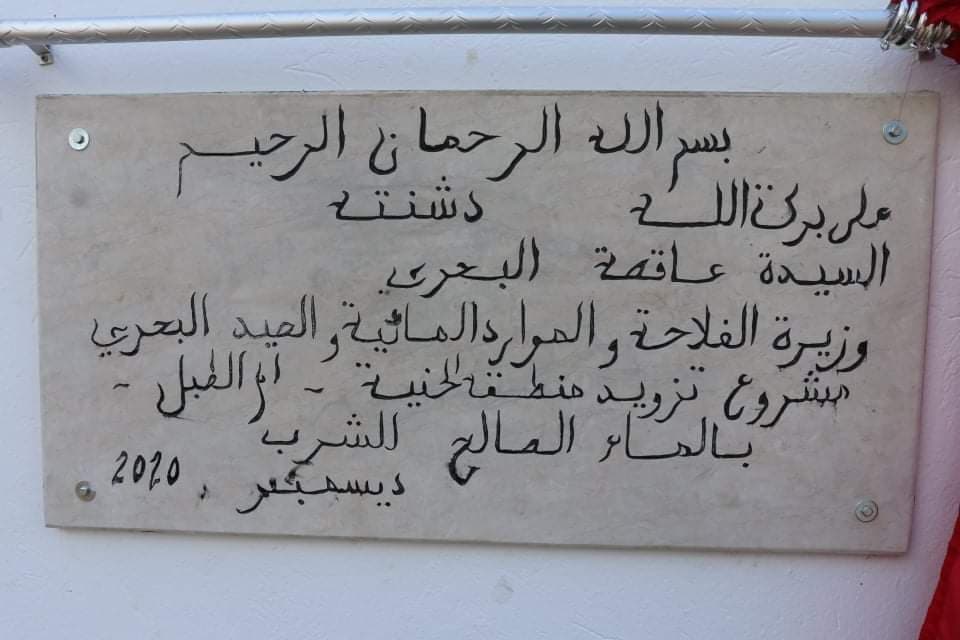 بسم الله الرحمان الرحيم
على بركة الله دشنته
السيدة عاقصة البحري
وزيرة الفلاحة والموارد المائية والصيد البحري
مشروع تزويد منطقة الحنية - ام الطبل -
بالماء الصالح للشرب
ديسمبر . 2020